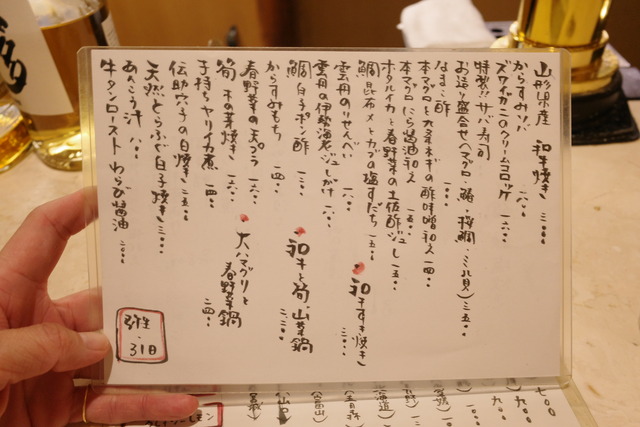 山形県産 和牛焼き 三〇〇〇
からすみソバ 一六〇〇
ズワイガニのクリームコロッケ
特製!!サバ寿司
お造り盛合せ(マグロ・鰆・桜鯛・ミル貝) 二五〇〇
なまこ酢
本マグロとワケネギの酢味噌和え 一四〇〇
本マグロにら醤油和え 一五〇〇
ホタルイカと春野菜の土佐酢ジュレ 一五〇〇
鯛昆布〆とカブの塩すだち 一五〇〇
和牛すき焼き 三〇〇〇
雲丹のりせんべい 一六〇〇
雲丹の伊勢海老ジュレがけ 一八〇〇
鯛白子ポン酢 一八〇〇
和牛と筍、山菜鍋 二八〇〇
からすみもち 一四〇〇
春野菜の天ぷら 一六〇〇
大ハマグリと春野菜鍋 二四〇〇
筍 木の芽焼き 一六〇〇
子持ちヤリイカ煮 一四〇〇
伝助穴子の白焼き 二五〇〇
天然とらふぐ白子焼き 三〇〇〇
あんこう汁 八〇〇
牛タンロースト わらび醤油 二〇〇〇
弥生・31日
七〇〇
九〇〇